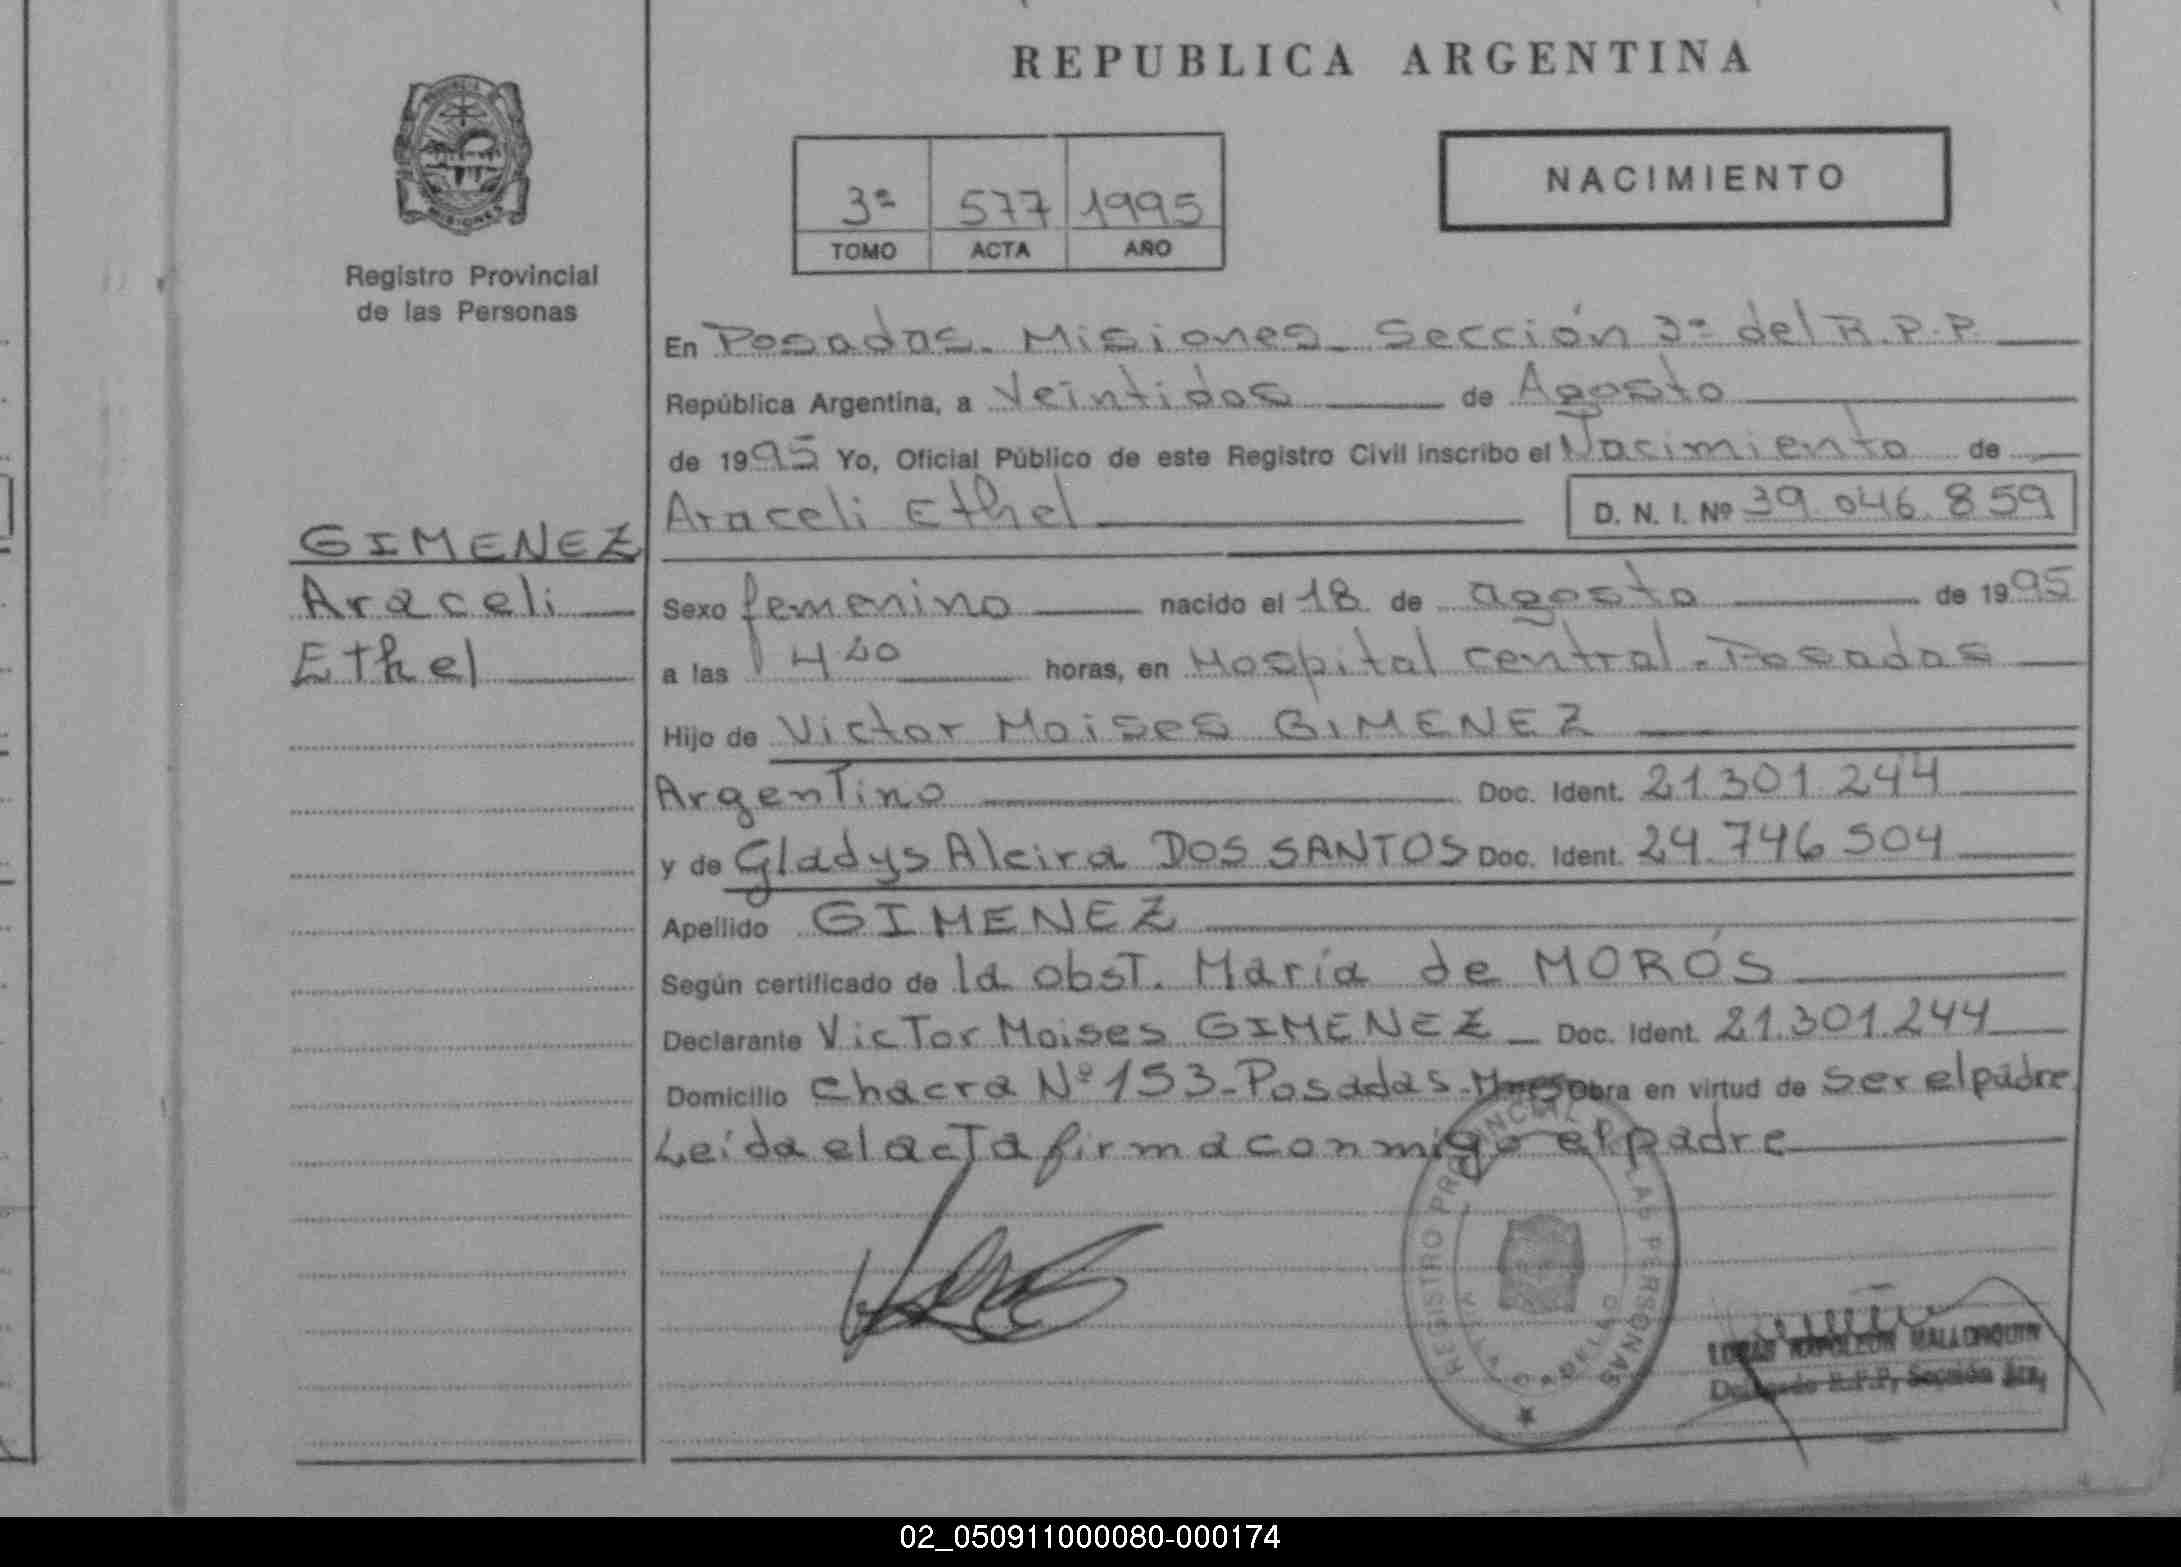 REPUBLICA ARGENTINA
NACIMIENTO
3ª 577 1995
TOMO ACTA AÑO
MISIONES
Registro Provincial
de las Personas
GIMENEZ
Araceli
Ethel
En Posadas. Misiones. Sección 3ª del R.P.P.
República Argentina, a Veintidos de Agosto
de 1995 Yo, Oficial Público de este Registro Civil inscribo el Nacimiento de
Araceli Ethel D. N. I. Nº 39.046.859
Sexo femenino nacido el 18 de agosto de 1995
a las horas, en Hospital central - Posadas
Hijo de Victor Moises GIMENEZ
Argentino Doc. Ident. 21.301.244
y de Gladys Alcira DOS SANTOS Doc. Ident. 24.746.504
Apellido GIMENEZ
Según certificado de la obst. María de MORÓS
Declarante Victor Moises GIMENEZ Doc. Ident. 21.301.244
Domicilio Chacra Nº 153 - Posadas - Obra en virtud de ser el padre
Leída el acta firma conmigo el padre
REGISTRO PROVINCIAL LAS PERSONAS
NAPOLEON MALLORQUIN
R.P.P, Sección 3ra,
02_050911000080-000174